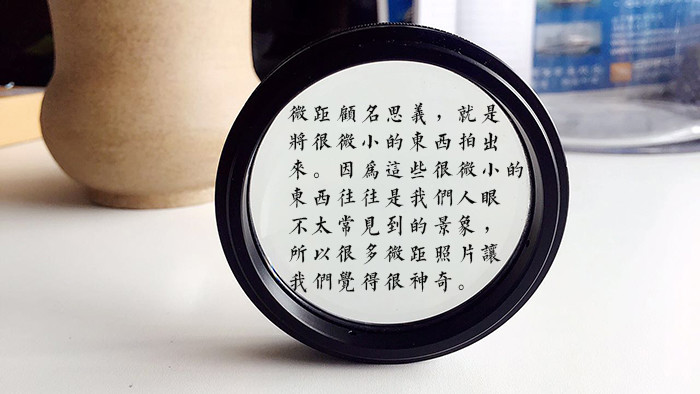 微距顧名思義，就是
將很微小的東西拍出
來。因為這些很微小的
東西往往是我們人眼
不太常見到的景象，
所以很多微距照片讓
我們覺得很神奇。